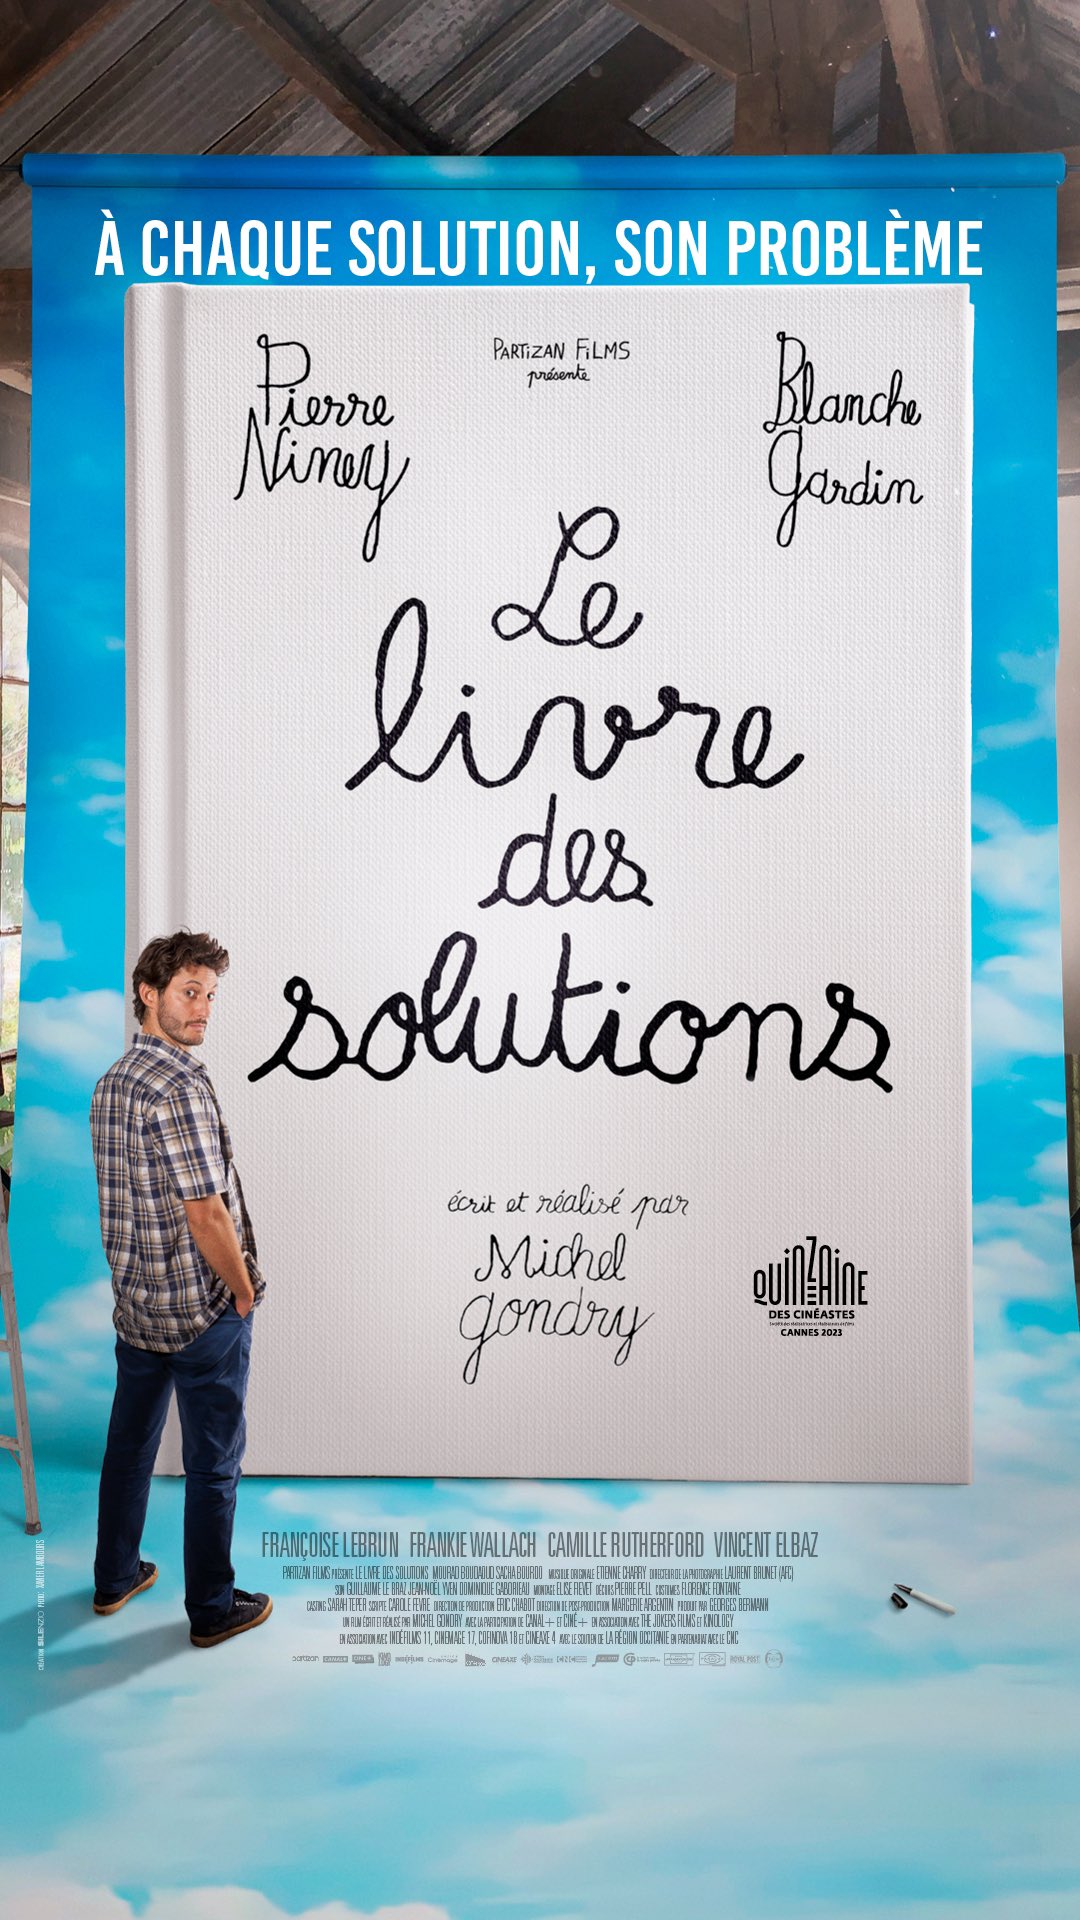 À CHAQUE SOLUTION, SON PROBLÈME
Pierre
Niney
PARTIZAN FILMS
présente
Blanche
Gardin
Le
livre
des
solutions
écrit et réalisé par
Michel
Gondry
QUINZAINE
DES CINÉASTES
CANNES 2023
FRANÇOISE LEBRUN FRANKIE WALLACH CAMILLE RUTHERFORD VINCENT ELBAZ
PARTIZAN FILMS PRÉSENTE LE LIVRE DES SOLUTIONS MOURAD BOUDAOUD SACHA BOURDO MUSIQUE ORIGINALE ETIENNE CHARRY DIRECTEUR DE LA PHOTOGRAPHIE LAURENT BRUNET (AFC)
SON GUILLAUME LE BRAZ JEAN-NOËL YVEN DOMINIQUE GABORIEAU MONTAGE ELISE FIEVET DÉCORS PIERRE PELL COSTUMES FLORENCE FONTAINE
CASTING SARAH TEPER SCRIPTE CAROLE FEVRE DIRECTION DE PRODUCTION ERIC CHABOT DIRECTION DE POST-PRODUCTION MARGERIE ARGENTIN PRODUIT PAR GEORGES BERMANN
UN FILM ÉCRIT ET RÉALISÉ PAR MICHEL GONDRY AVEC LA PARTICIPATION DE CANAL+ ET CINÉ+ EN ASSOCIATION AVEC THE JOKERS FILMS ET KINOLOGY
EN ASSOCIATION AVEC INDÉFILMS 11, CINEMAGE 17, COFINOVA 18 ET CINEAXE 4 AVEC LE SOUTIEN DE LA RÉGION OCCITANIE EN PARTENARIAT AVEC LE CNC
partizan CANAL+ CINÉ+ INDÉFILMS Cinémage CINEAXE ROYAL POST
CRÉATION SILENZIO PHOTO: XAVIER LAMBOURS